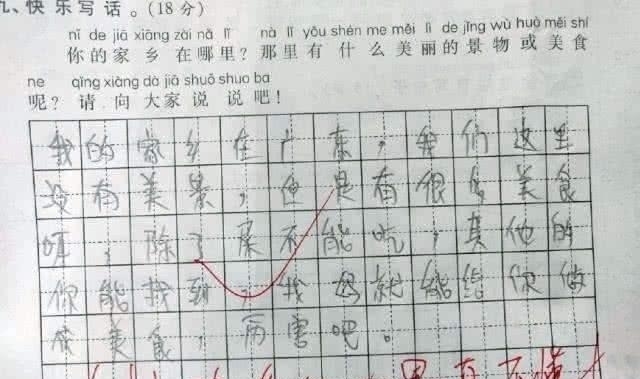 九、快乐写话。(18分)
nǐ de jiā xiāng zài nǎ lǐ nà lǐ yǒu shén me měi lì de jǐng wù huò měi shí
你的家乡在哪里?那里有什么美丽的景物或美食
ne qǐng xiàng dà jiā shuō shuo ba
呢?请向大家说说吧!
我的家乡在广东,我们这里
没有美景,但是有很多美食
呢,除了屎不能吃,其他的
你能找到,我妈就能给你做
成美食,厉害吧。